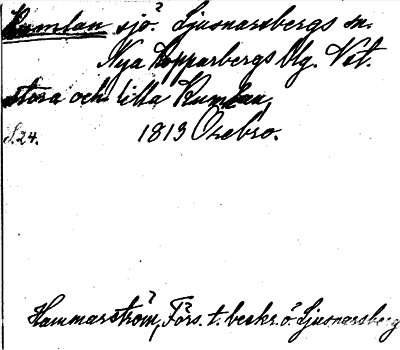 Rumlan sjö? Ljusnarsbergs sn.
Nya Kopparbergs blg. Vst.
stora och lilla Rumlan,
S. 24. 1813 Örebro.
Hammarström, Förs. t. beskr. ö. Ljusnarsberg